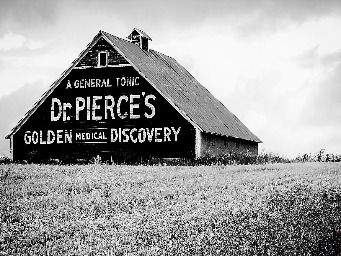 A GENERAL TONIC
DR. PIERCE'S
GOLDEN MEDICAL DISCOVERY